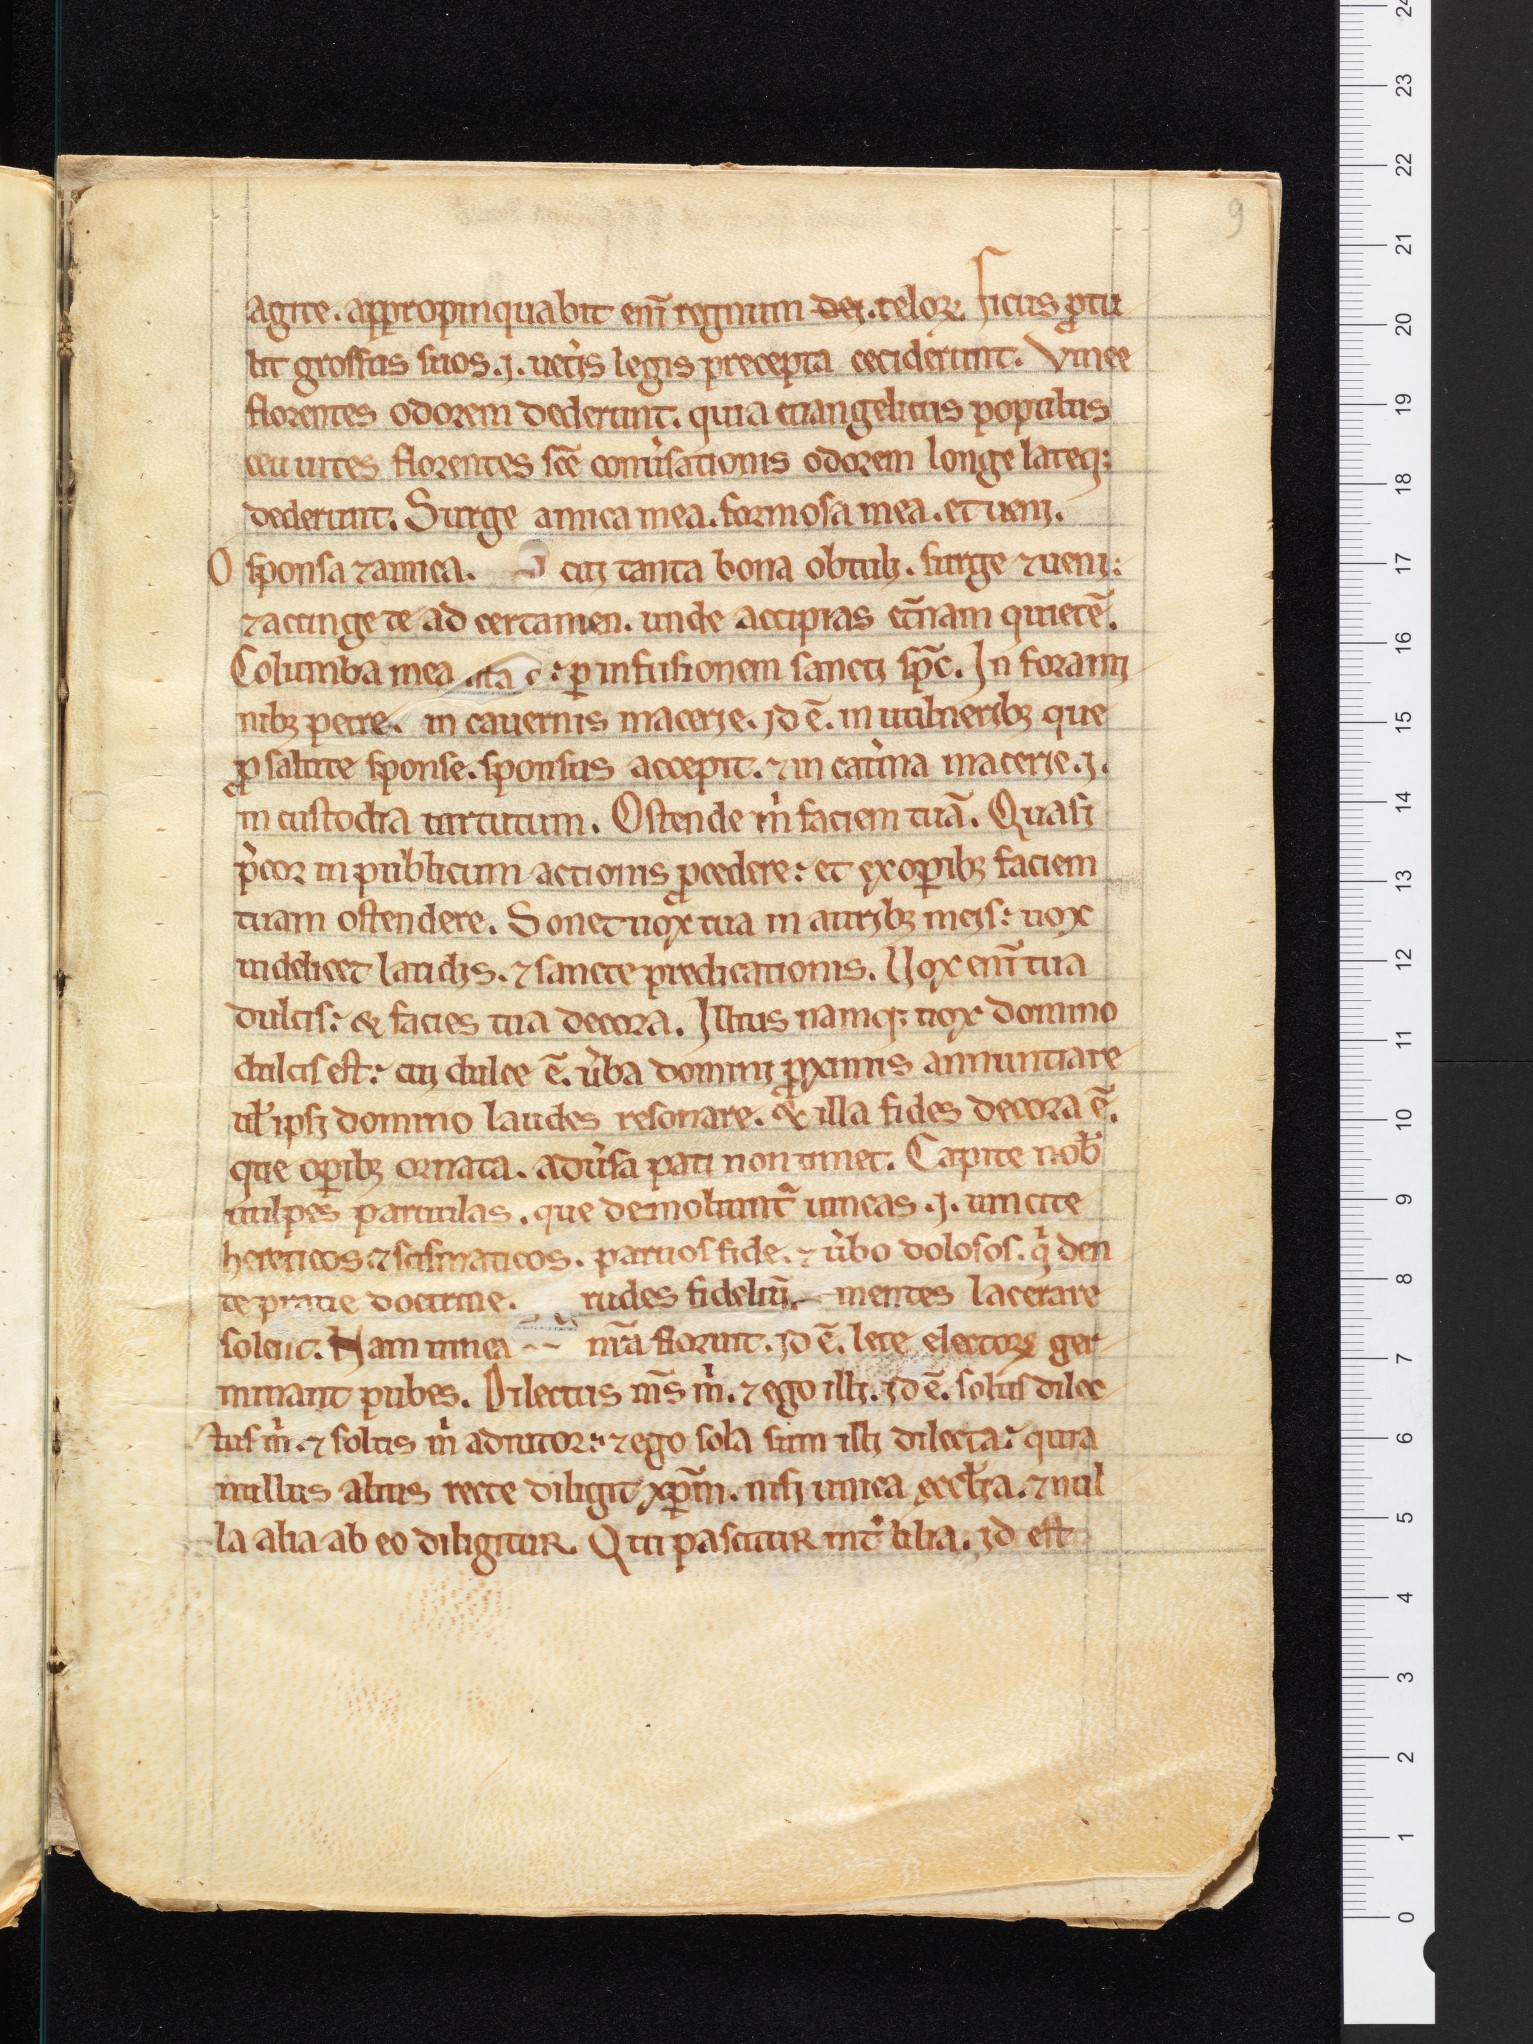 9
agite. appropinquabit eni͂ regnum dej. celoꝝ. Ficus ꝓtu
lit grossus suos .j. uet͛is legis precepta ceciderunt. Vinee
florentes odorem dederunt. quia euangelicus populus
ceu uites florentes sc̄e conu͛sationis odorem longe lateq;
dederunt. Surge amica mea. formosa mea. et uenj.
O sponsa ⁊ amica. cuj tanta bona obtulj. surge ⁊ uenj:
⁊ accinge te ad certamen. unde accipias et͛nam quietē.
Columba mea ita : ꝑ infusionem sanctj sp̄c. In foramj
nibꝫ petre. in cauernis macerie. jd ē. in uulneribꝫ que
ꝓ salute sponse. sponsus accepit. ⁊ in cau͛na macerie .j.
in custodia uirtutum. Ostende m̓ faciem tuā. Quasj
p̓cor in publicum actionis ꝓcedere: et ex oꝑibꝫ faciem
tuam ostendere. Sonet uox tua in auribꝫ meis: uox
uidelicet laudis. ⁊ sancte predicationis. Uox eni͂ tua
dulcis: & facies tua decora. Illius namq; uox domino
dulcis est: cuj dulce ē. u͛ba dominj ꝓximis annuntiare
ul̓ ipsj domino laudes resonare. & illa fides decora ē.
que oꝑibꝫ ornata. adu͛sa pati non timet. Capite nob̓
uulpes paruulas. que demoliunt͛ uineas .j. uincite
hereticos ⁊ scismaticos. paruos fide. ⁊ u͛bo dolosos. q̓ den
te praue doctrine. rudes fideliū mentes lacerare
solent. Nam uinea nr̄a floruit. jd ē. lete electoꝝ ger
minant pubes. Dilectus m̄s m̓. ⁊ ego illj. jd ē. solus dilec
tus m̓. ⁊ solus m̓ adiutor: ⁊ ego sola sum illj dilecta: quia
nullus alius recte diligit xp̄m. nisj unica eccl̓ia. ⁊ nul
la alia ab eo diligitur. Qui pascitur int͛ lilia. jd est
0 1 2 3 4 5 6 7 8 9 10 11 12 13 14 15 16 17 18 19 20 21 22 23 24